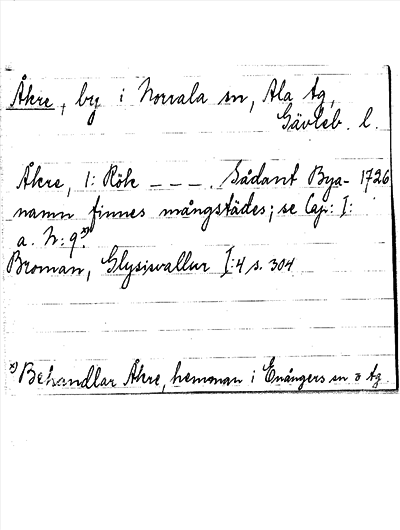 Åkre, by i Norrala sn, Ala tg,
Gävleb. l.
Åkre, 1: Rök _ _ _. Sådant Bya- 1726
namn finnes mångstädes; se Cap: I:
a. N: 9.x)
Broman, Glysisvallur I:4 s. 304
x) Behandlar Åkre, hemman i Enångers sn o tg.